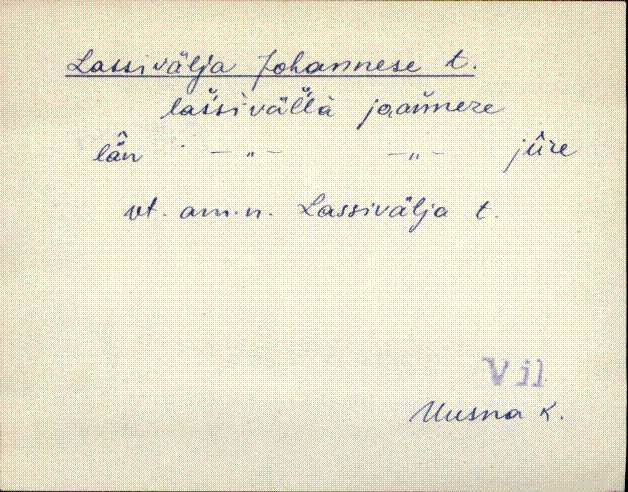 Lassivälja Johannese t.
las̆si̬väl̆lä jaan̆nere
lä̂n — „ — — „ — jûre
vt. am.n. Lassivälja t.
Vil
Uusna k.